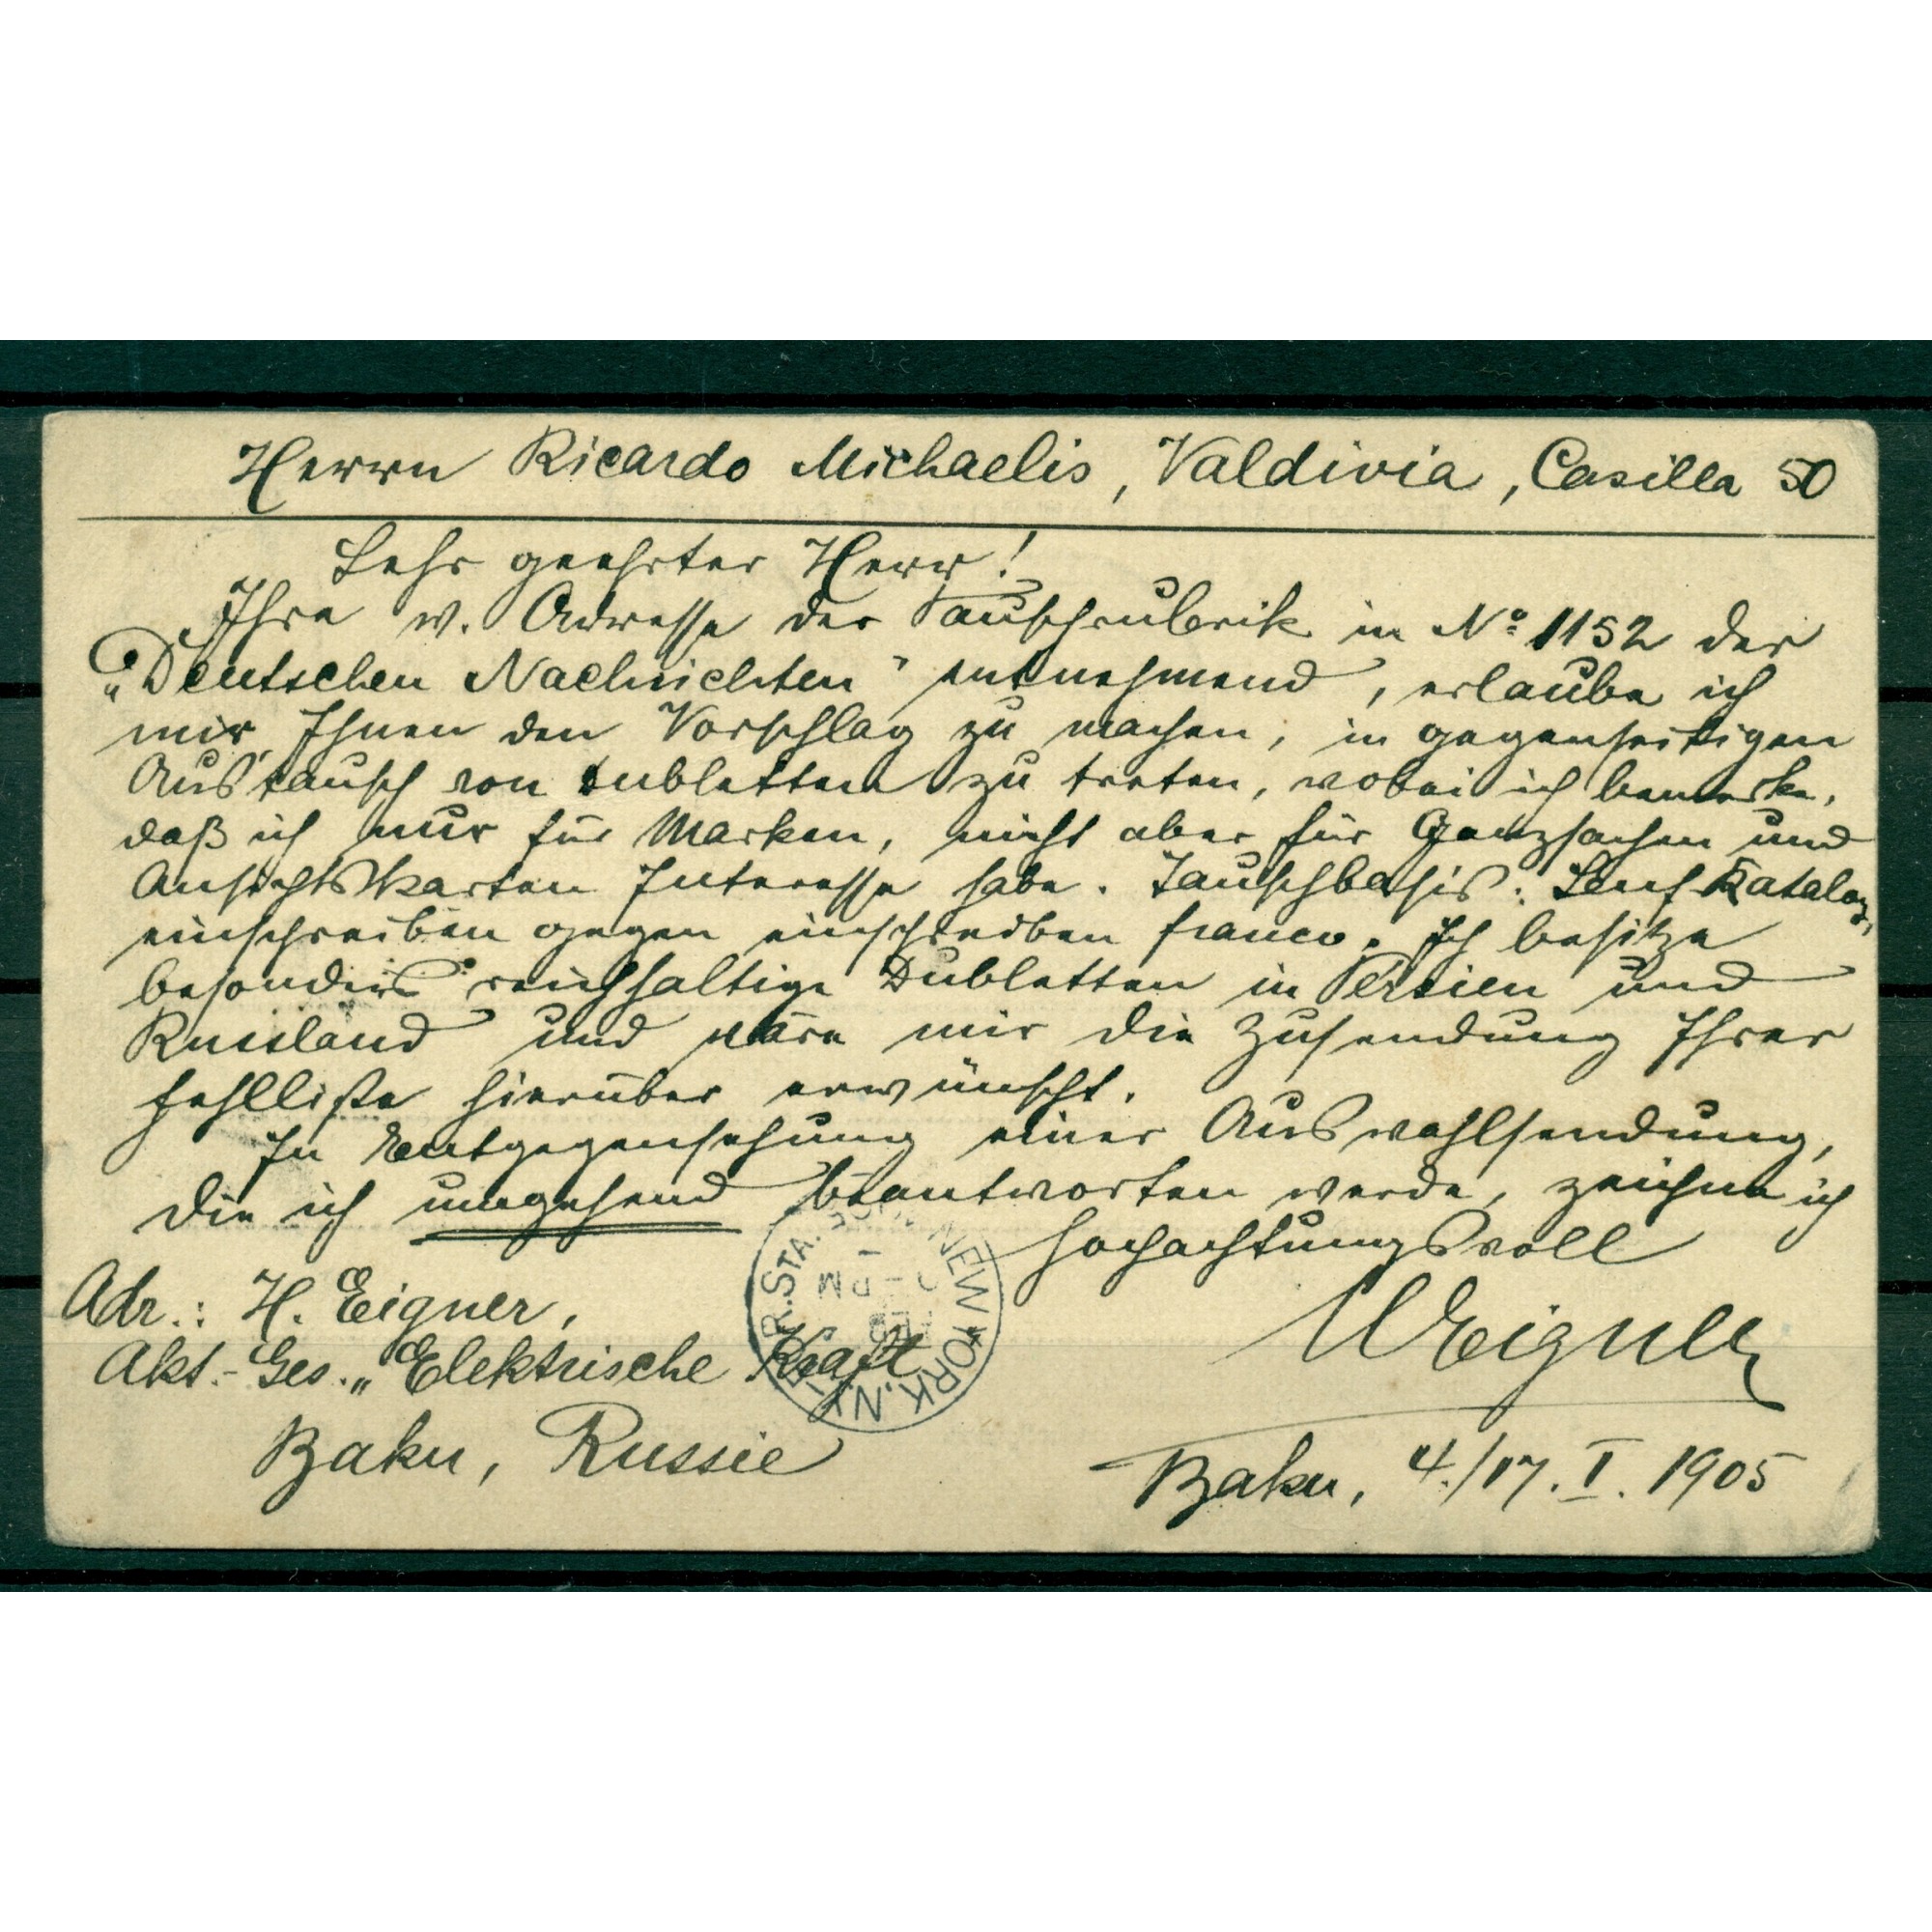 Herrn Ricardo Michaelis, Valdivia, Casilla 50
Sehr geehrter Herr!
Ihre w. Adresse der Tauschrubrik in No 1152 der
„Deutschen Nachrichten" entnehmend, erlaube ich
mir, Ihnen den Vorschlag zu machen, in gegenseitigen
Austausch von Dubletten zu treten, wobei ich bemerke,
daß ich nur für Marken, nicht aber für Ganzsachen und
Ansichtskarten Interesse habe. Tauschbasis: Senf Katalog,
einschreiben gegen einschreiben franco. Ich besitze
besonders reichhaltige Dubletten in Persien und
Russland und wäre mir die Zusendung Ihrer
Fehlliste hierüber erwünscht.
In Entgegensehung einer Auswahlsendung,
die ich umgehend beantworten werde, zeichne ich
hochachtungsvoll
HEigner
Adr.: H. Eigner,
Akt.-Ges. „Elektrische Kraft
Baku, Russie
Baku, 4./17. I. 1905
NEW YORK, N.Y.
R. STA.
PM